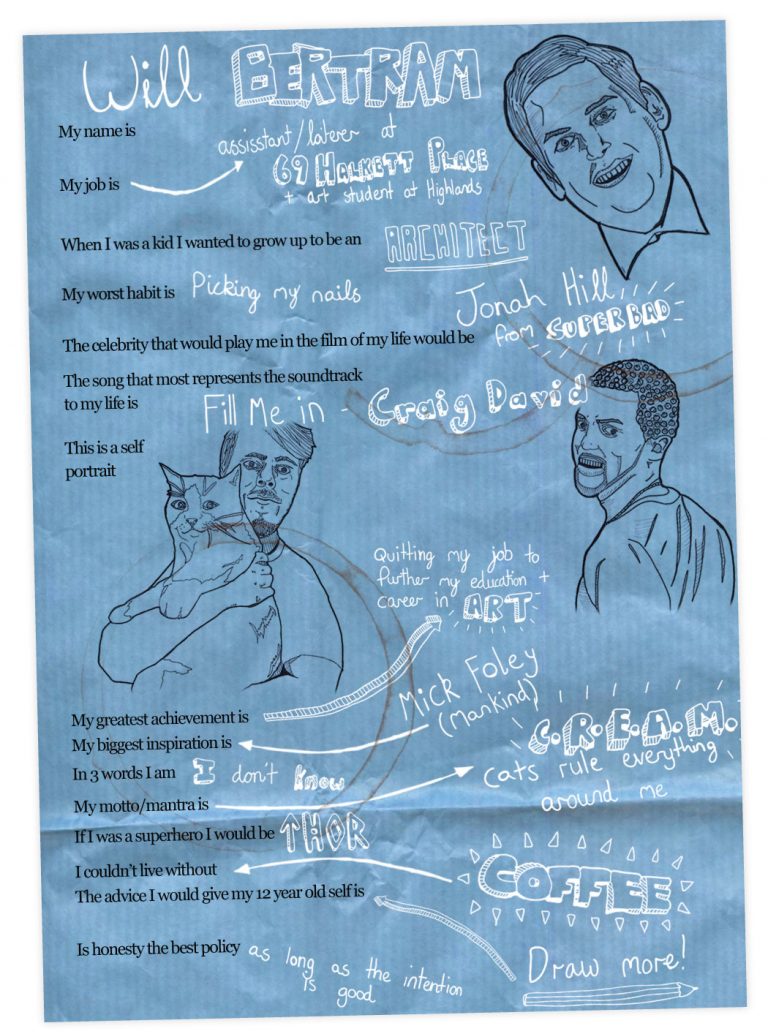 Will BERTRAM
My name is
My job is
assisstant/laterer at
69 HALKETT PLACE
+ art student at Highlands
When I was a kid I wanted to grow up to be an
ARCHITECT
My worst habit is
Picking my nails
The celebrity that would play me in the film of my life would be
Jonah Hill
from SUPERBAD
The song that most represents the soundtrack
to my life is
Fill Me in - Craig David
This is a self
portrait
Quitting my job to
further my education +
career in ART
My greatest achievement is
My biggest inspiration is
Mick Foley
(Mankind)
In 3 words I am
I don't know
My motto/mantra is
C.R.E.A.M.
cats rule everything
around me
If I was a superhero I would be
THOR
I couldn't live without
COFFEE
The advice I would give my 12 year old self is
Draw more!
Is honesty the best policy
as long as the intention
is good